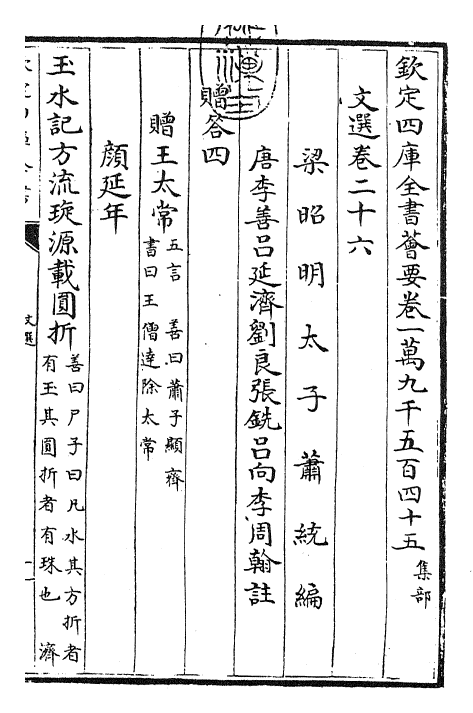 欽定四庫全書薈要卷一萬九千五百四十五 集部
文選卷二十六
梁昭明太子蕭統編
唐李善吕延濟劉良張銑吕向李周翰註
贈答四
贈王太常 五言 善曰蕭子顯齊
書曰王僧達除太常
顔延年
玉水記方流琁源載圓折 善曰尸子曰凡水其方折者
有玉其圓折者有珠也 濟
文選